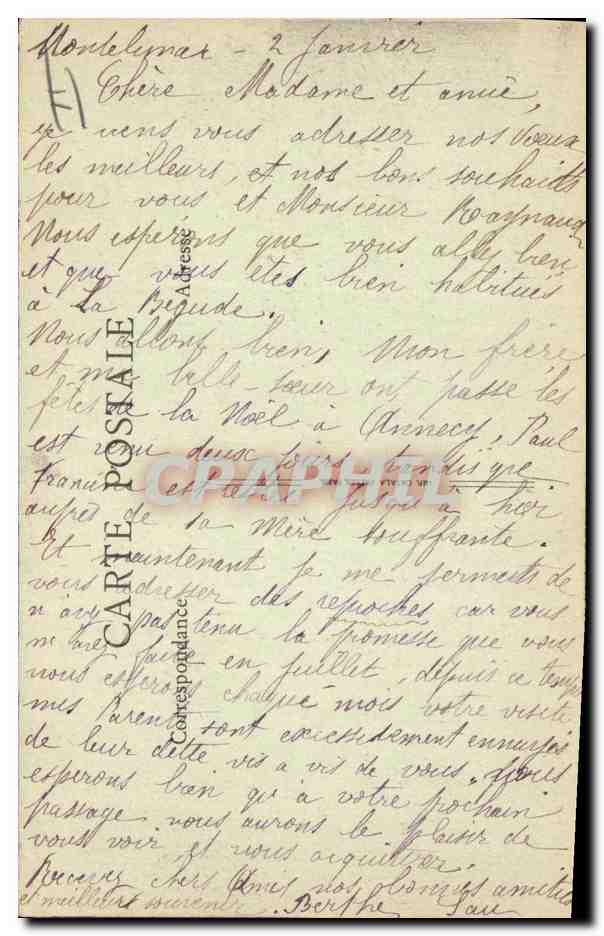 Montelimar - 2 Janvier
Chère Madame et amie,
je viens vous adresser nos voeux
les meilleurs, et nos bons souhaits
pour vous et Monsieur Raynaud
Nous espérons que vous allez bien
et que vous êtes bien habitués
à La Begude.
Nous allons bien, Mon frère
et ma belle-soeur ont passé les
fêtes de la Noël à Annecy, Paul
est venu deux jours tandis que
est restée jusqu'à hier
auprès de sa Mère souffrante.
Et maintenant je me permets de
vous adresser des reproches car vous
n'avez pas tenu la promesse que vous
m'avez faite en Juillet, depuis ce temps
nous esperons chaque mois votre visite
mes Parents sont excessivement ennuyés
de leur dette vis a vis de vous, Nous
esperons bien qu'à votre prochain
passage vous aurons le plaisir de
vous voir et nous acquitter.
Recevez chers Amis nos bonnes amitiés
et meilleurs souvenir. Berthe
CARTE POSTALE
Correspondance
Adresse
CPAPHIL